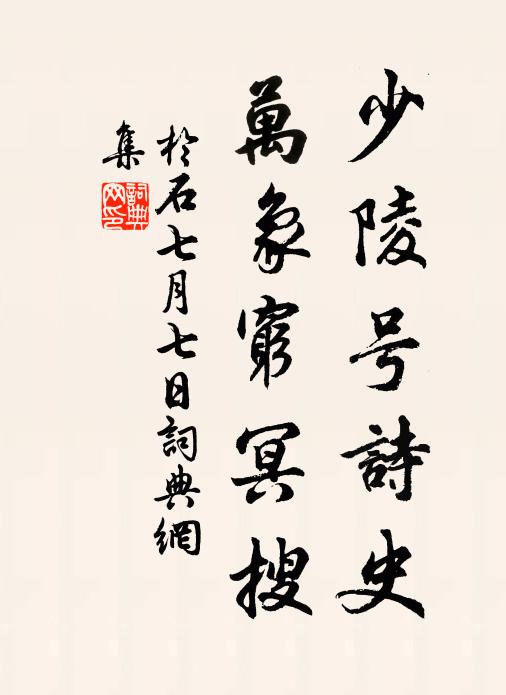 少陵号詩史
萬象窮冥搜
於石七月七日詞典網
集
詞典網印